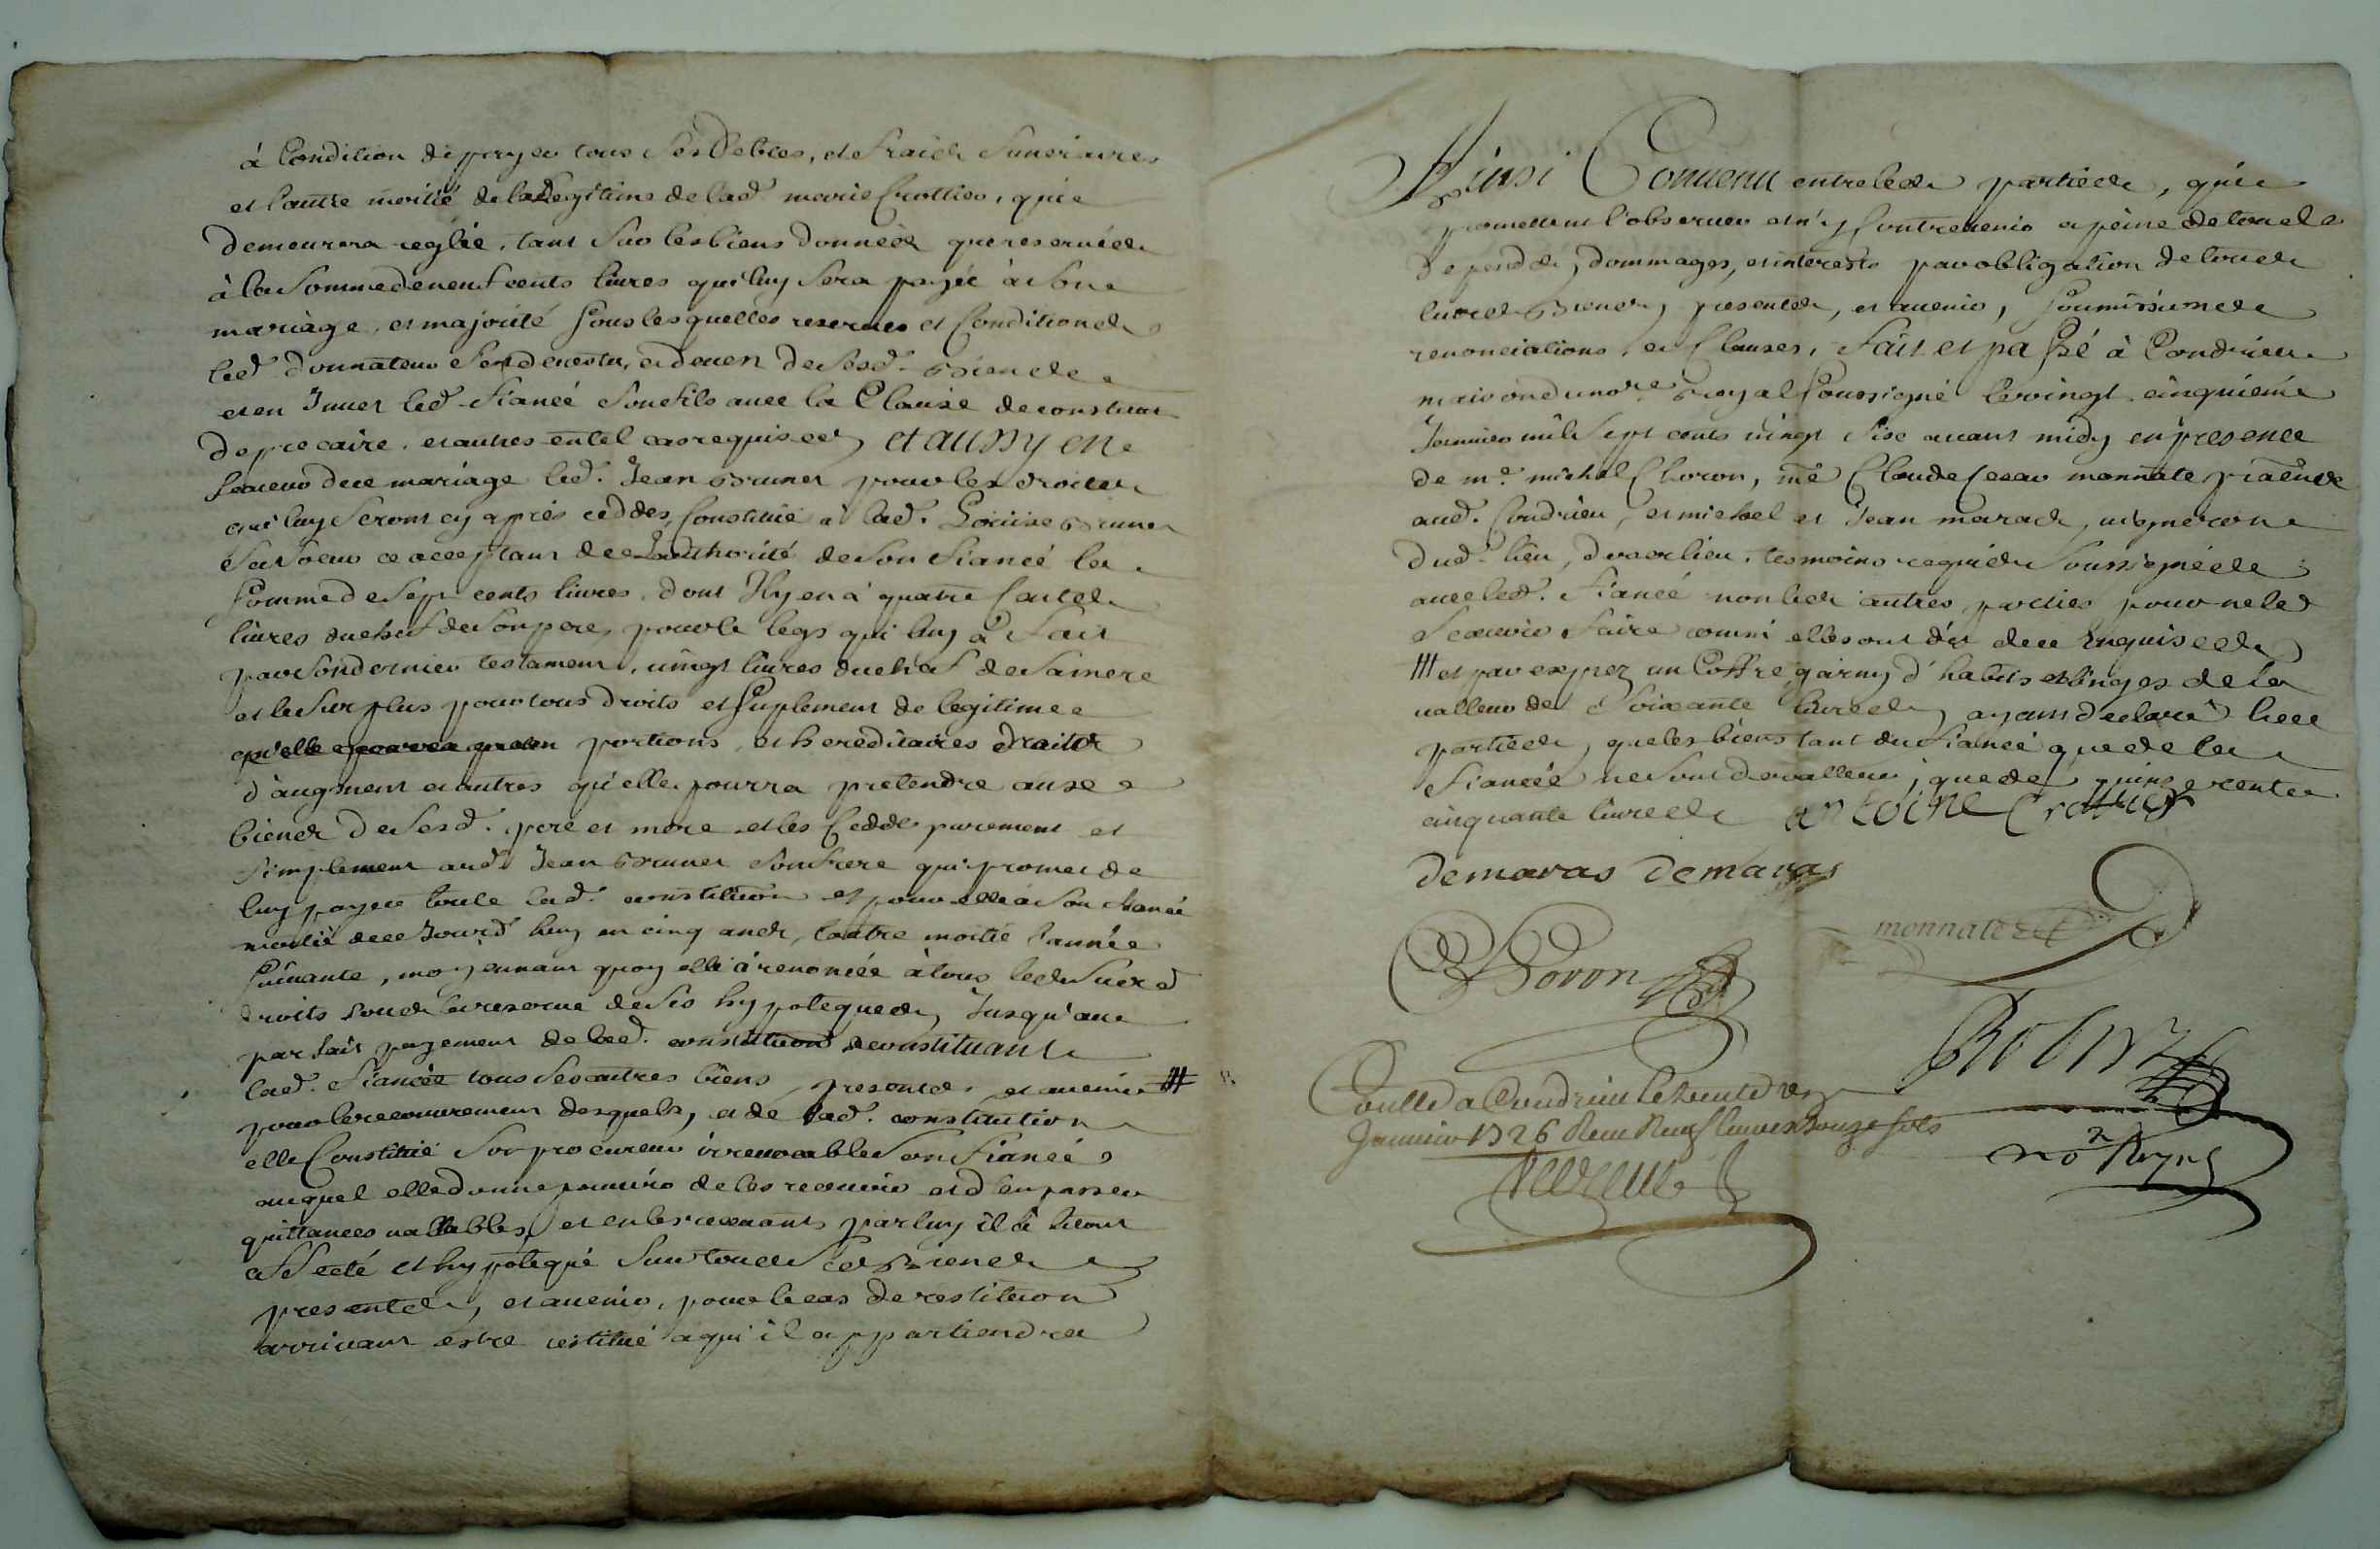 à Condition de payer tous ses Debtes, et fraids funeraires
et l'autre moitié de la Legitime de lad. marie Crottier, qui
demeurera reglée, tant sur les biens données que reservées
à la somme de neuf cents livres qui luy sera payée à son
mariage, et majorité sous lesquelles reserves et Conditions
led. donnateur s'est devestu, et de uen de sesd. Biens
et en Inuet led. fiancé son fils avec la Clause de constitut
de precaire, et autres en tel cas requises, et aussy en
faveur de ce mariage led. Jean Brunet pour les droits
qui luy seront cy après ceddes, Constitué à lad. Louise Brunet
sa soeur ce acceptant de L'authorité de son fiancé la
somme de sept cents livres, dont Il y en à quatre Cents
livres du chef de son pere, pour le legs qui luy à fait
par son dernier testament, vingt livres du chef de sa mere
et le surplus pour tous droits et suplement de legitime
qu'elle portions, et hereditaires droits
d'augment et autres qu'elle pourra pretendre aux
biens de sesd. pere et mere et les Cedde purement et
simplement aud. Jean Brunet son frere qui promet de
luy payer toute lad. constitution et pour elle à son fiancé
moitié de ce Jourd'huy en cinq ans, l'autre moitié l'année
suivante, moyennant quoy elle à renoncée à tous lesd. susd.
droits sous la reserve de ses hypoteques, Jusqu'au
parfait payement de lad. constitution se constituant
lad. fiancée tous ses autres biens, presents, et avenir #
pour le recouvrement desquels, et de lad. constitution
elle Constitué son procureur irrevocable son fiancé
auquel elle donne pouvoir de les recouvrir et d'en passer
quittances vallables, et en les recevants par luy il les à
affecté et hypotequé sur tous ses Biens
presents, et avenir, pour le cas de restitution
arrivant estre restitué à qui il appartiendra
Ainsi Convenu entre lesd. parties, qui
promettent l'observer et n'y Contrevenir à peine de tous
depends, dommages, et interests par obligation de tous
leurs Biens, presents, et avenir, soumissions
renonciations, et Clauses, fait et passé à Condrieu
maison du no.re Royal soussigné le vingt cinquieme
Janvier mil sept cents vingt sise avant midy en presence
de m.e michel Choron, m.e Claude Cesar monnate, praticiens
aud. Condrieu, et michel et Jean maras, vigneron
dud. lieu, dud. lieu, tesmoins requis soussignées
avec led. fiancé non les autres parties pour ne le
scavoir faire comme elles ont dit de ce Enquises
# et par exprez un Coffre garny d'habits et linges de la
valleur de soixante livres, ayant declaré les
parties, que les biens tant du fiancé que de la
fiancée ne sont de valleur, que de quinze cents
cinquante livres antoine Crottier
demaras demaras
Choron
monnate
Robin
no.re Royal
Coullé a Condrieu le trente
Janvier 1726 Receu neuf livres douze sols